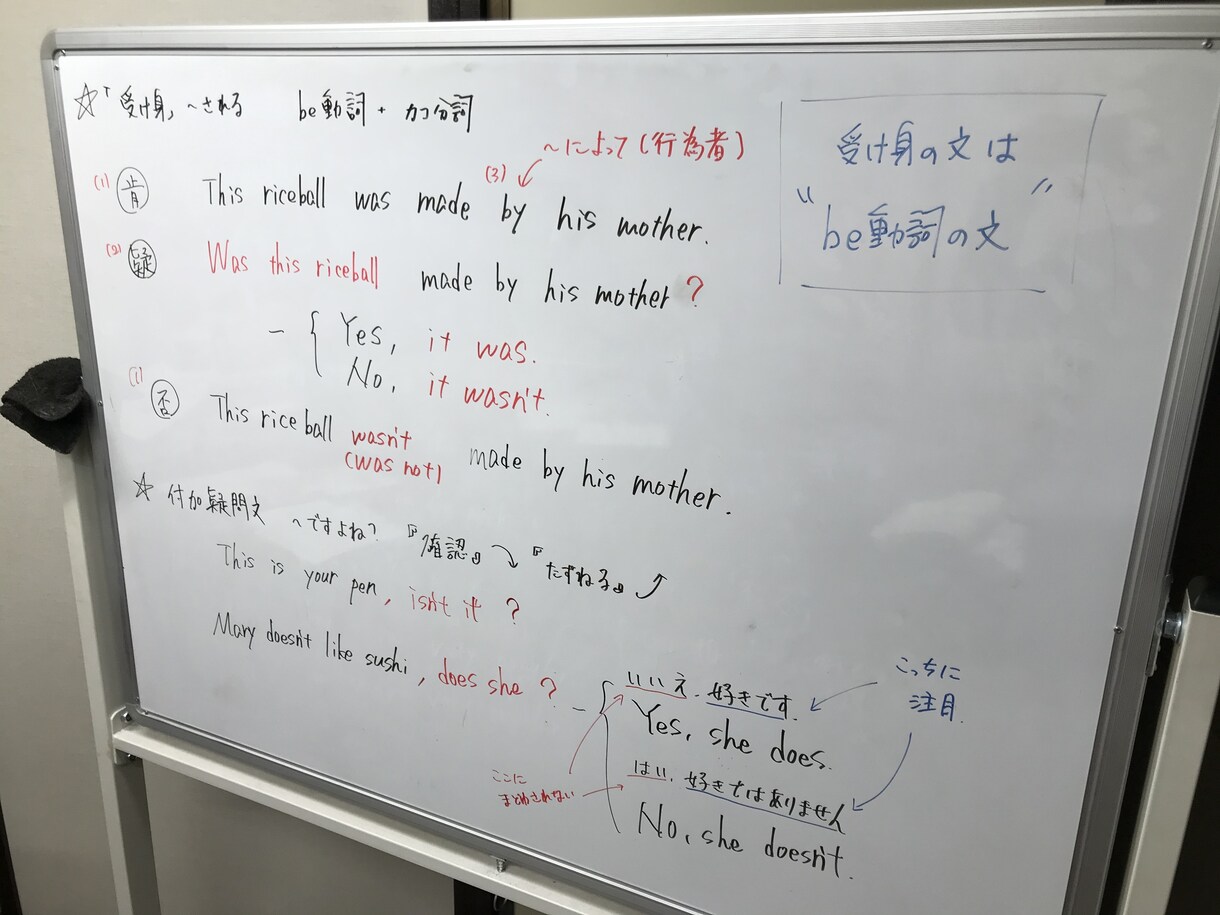 ☆「受け身」 〜される be動詞 + カコ分詞
〜によって(行為者)
(1) 肯 This riceball was made (3) by his mother.
(2) 疑 Was this riceball made by his mother ?
- { Yes, it was.
No, it wasn't.
(1) 否 This riceball wasn't made by his mother.
(was not)
受け身の文は
"be動詞の文"
☆ 付加疑問文 〜ですよね? 『確認』↘ 『たずねる』⤴
This is your pen, isn't it ?
Mary doesn't like sushi, does she ?
- { いいえ、好きです。
Yes, she does.
はい、好きではありません
No, she doesn't.
こっちに
注目.
ここに
まどわされない